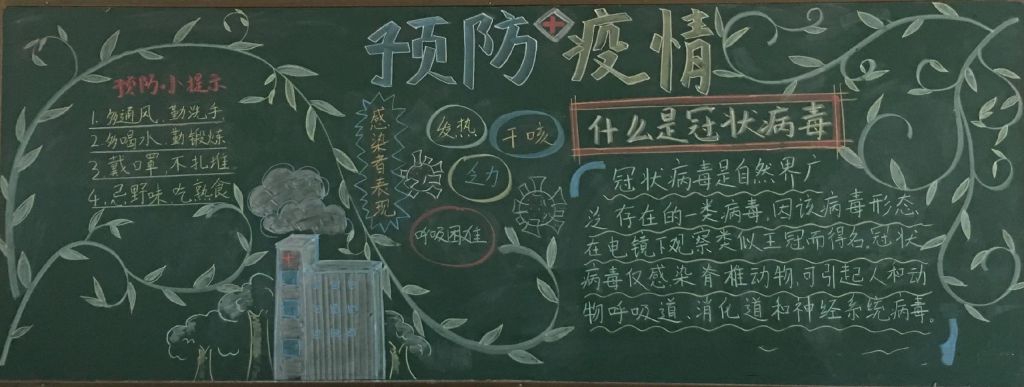 预防疫情
预防小提示
1.多通风,勤洗手
2.多喝水、勤锻炼
3.戴口罩,不扎堆
4.忌野味吃熟食
感染者表现
发热
干咳
乏力
呼吸困难
什么是冠状病毒
冠状病毒是自然界广
泛存在的一类病毒,因该病毒形态
在电镜下观察类似王冠而得名,冠状
病毒仅感染脊椎动物,可引起人和动
物呼吸道、消化道和神经系统病毒。